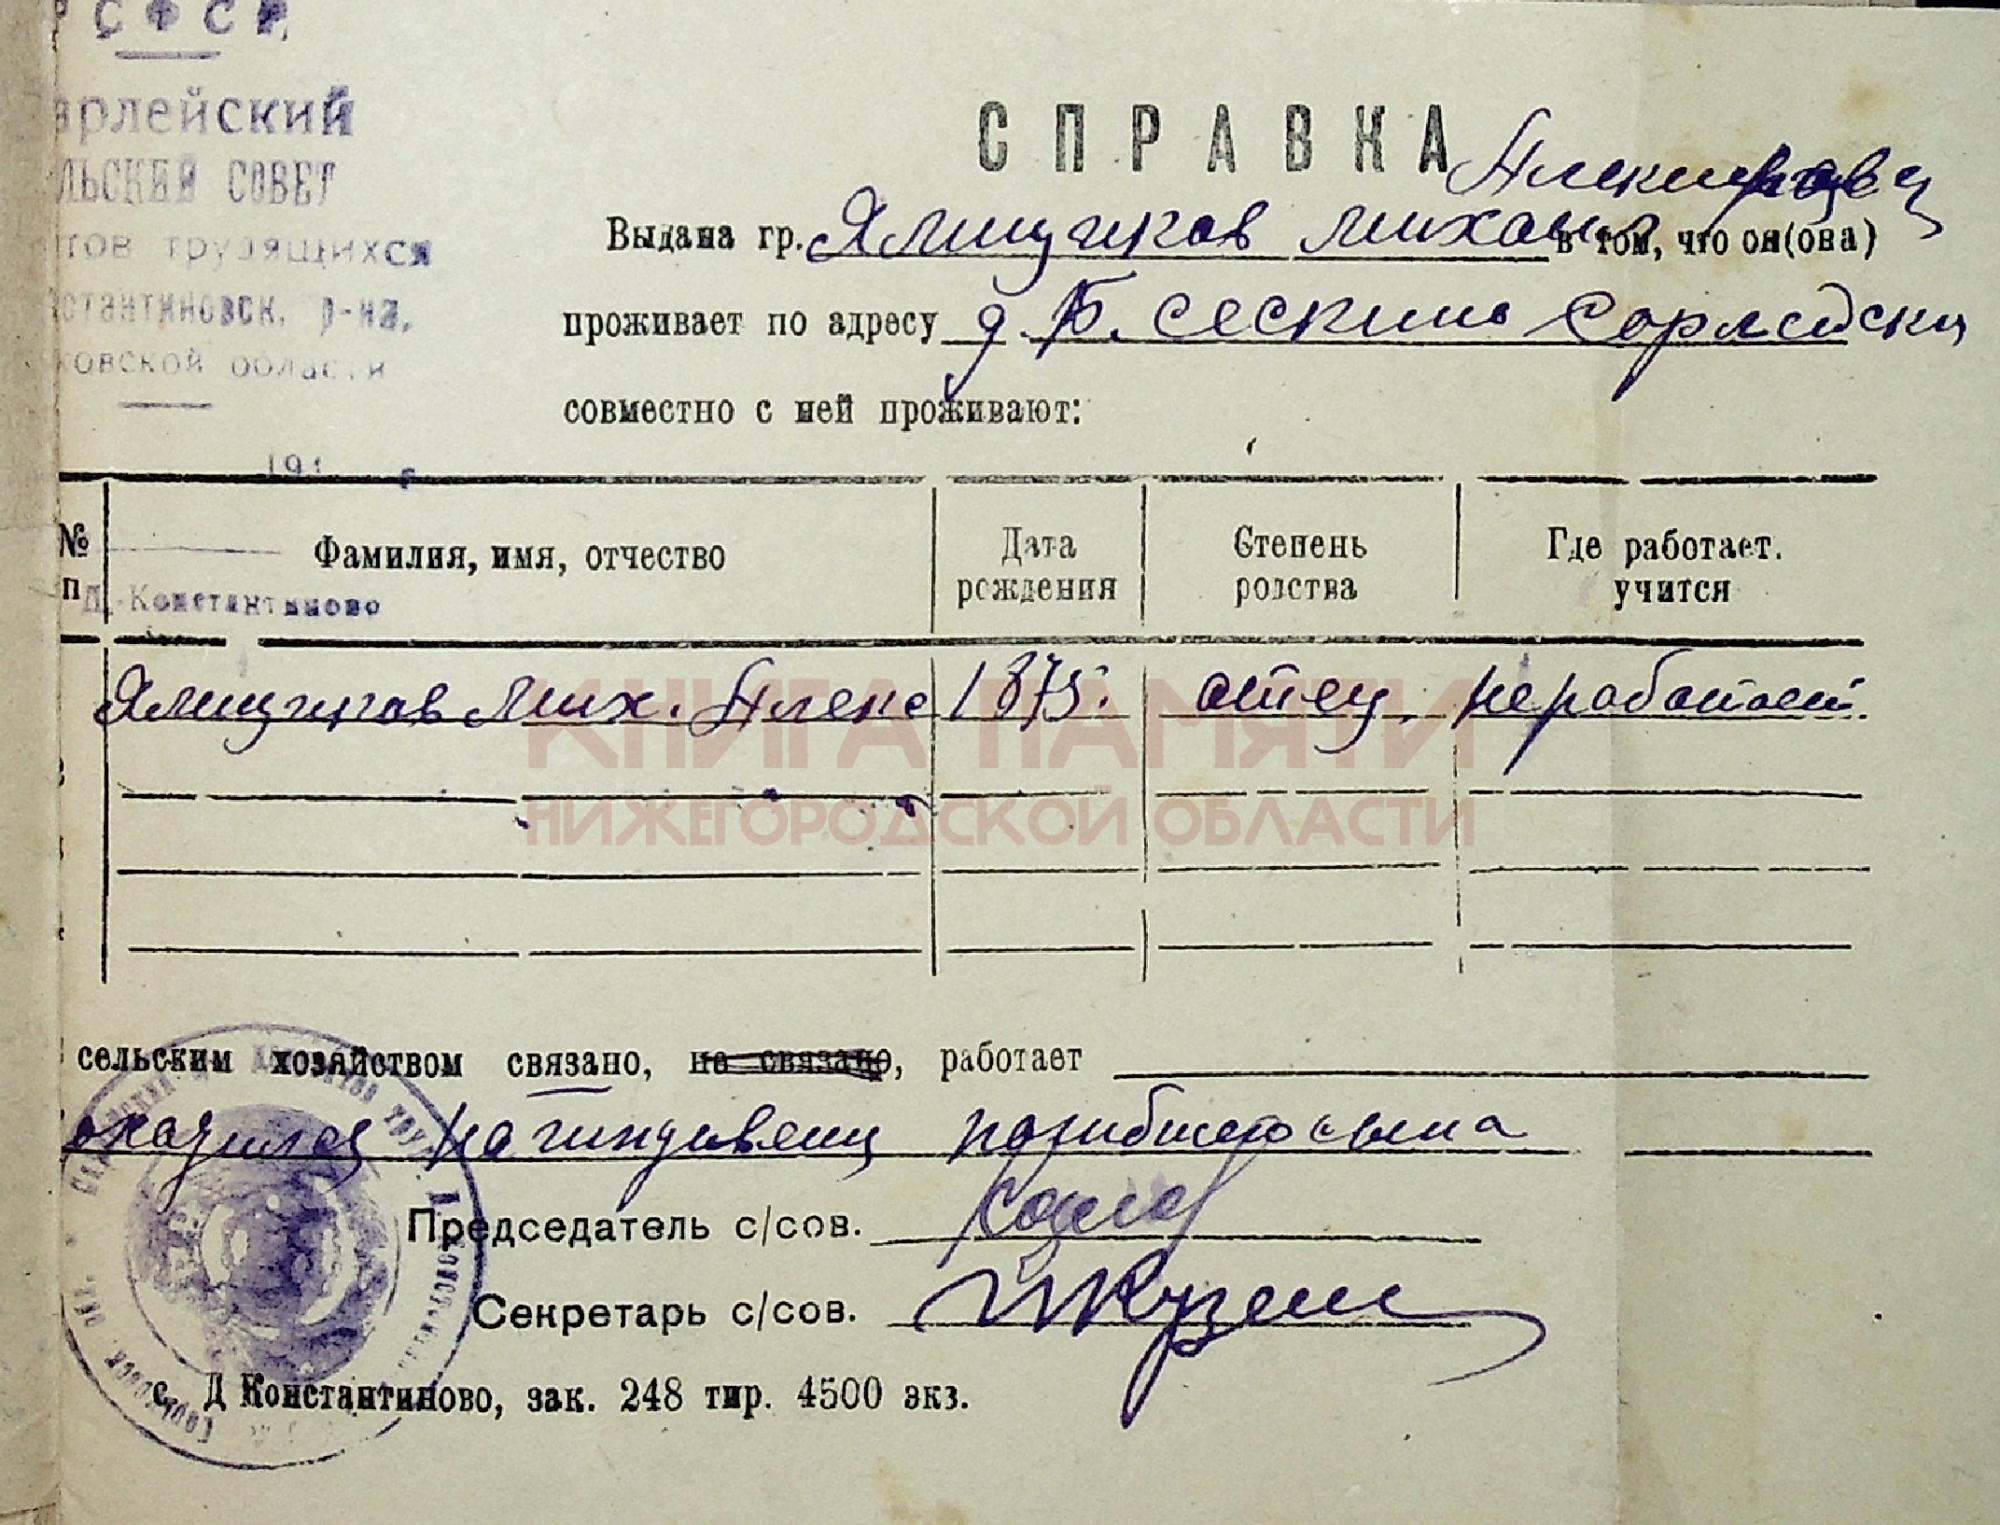 РСФСР
арлейский
льский совет
тов трудящихся
стантиновск. р-на,
ковской области
191 г
Д.-Константиново
СПРАВКА
Выдана гр. Ямщиков Михаил в том, что он(она)
проживает по адресу д. Б. Сескино Сарлейски
совместно с ней проживают:
№ п Фамилия, имя, отчество Дата рождения Степень родства Где работает. учится
Ямщиков Мих. Алекс 1875. отец. не работает.
КНИГА ПАМЯТИ
НИЖЕГОРОДСКОЙ ОБЛАСТИ
сельским хозяйством связано, не связано, работает
находился на иждивении погибшего сына
Председатель с/сов.
Секретарь с/сов.
с. Д Константиново, зак. 248 тир. 4500 экз.